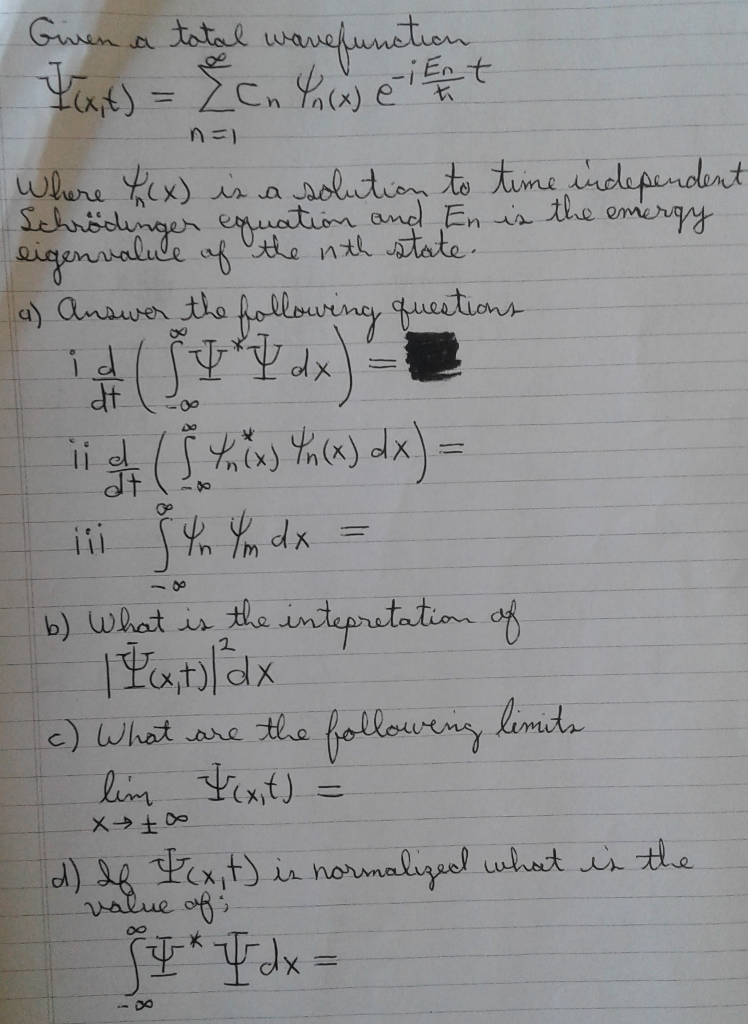 Given a total wavefunction
Ψ(x,t) = ∞ Σ n=1 Cn ψn(x) e^-i En/ħ t
Where ψn(x) is a solution to time independent
Schrödinger equation and En is the emergy
eigenvalue of the nth state.
a) Answer the following questions
i d/dt ( ∫_-∞^∞ Ψ*Ψ dx ) =
ii d/dt ( ∫_-∞^∞ ψn*(x) ψn(x) dx ) =
iii ∫_-∞^∞ ψn ψm dx =
b) What is the intepretation of
|Ψ(x,t)|² dx
c) What are the following limits
lim x→±∞ Ψ(x,t) =
d) If Ψ(x,t) is normalized what is the
value of;
∫_-∞^∞ Ψ* Ψ dx =